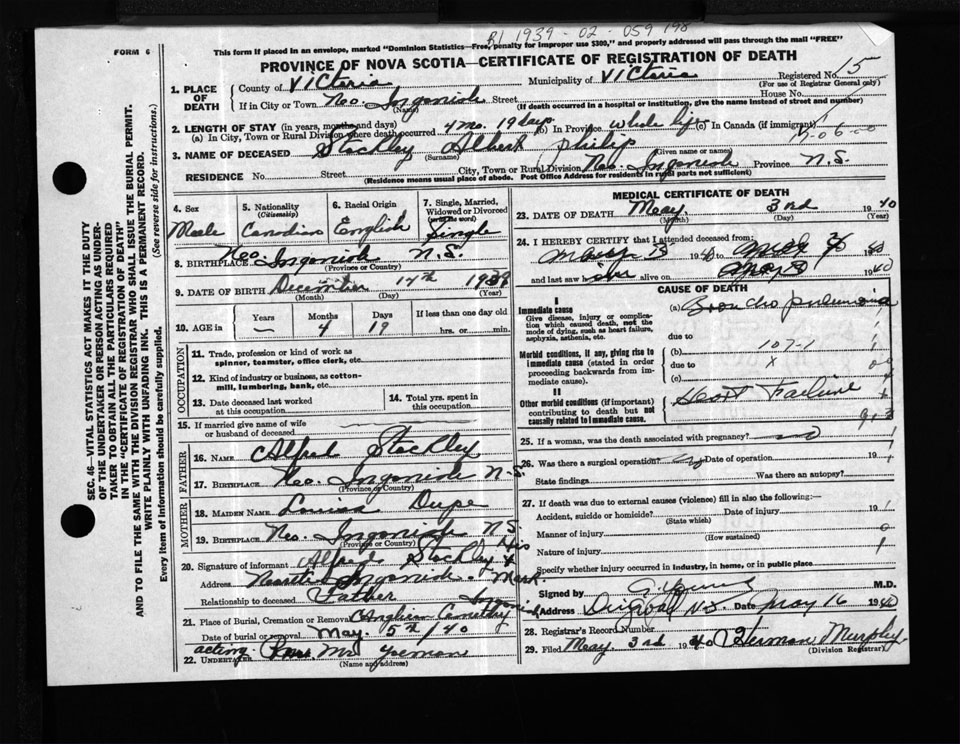 R1 1939-02-059198
FORM 6
This form if placed in an envelope, marked "Dominion Statistics—Free, penalty for improper use $300," and properly addressed will pass through the mail "FREE"
PROVINCE OF NOVA SCOTIA—CERTIFICATE OF REGISTRATION OF DEATH
SEC. 46—VITAL STATISTICS ACT MAKES IT THE DUTY
OF THE UNDERTAKER OR PERSON ACTING AS UNDER-
TAKER TO OBTAIN ALL THE PARTICULARS REQUIRED
IN THE "CERTIFICATE OF REGISTRATION OF DEATH"
AND TO FILE THE SAME WITH THE DIVISION REGISTRAR WHO SHALL ISSUE THE BURIAL PERMIT.
WRITE PLAINLY WITH UNFADING INK. THIS IS A PERMANENT RECORD.
Every item of information should be carefully supplied. (See reverse side for instructions.)
1. PLACE OF DEATH
County of Victoria Municipality of Victoria Registered No. 15
(For use of Registrar General only)
If in City or Town Neo. Ingonish Street House No.
(Name) (If death occurred in a hospital or institution, give the name instead of street and number)
2. LENGTH OF STAY (in years, months and days)
(a) In City, Town or Rural Division where death occurred 4 mo. 19 days (b) In Province whole life (c) In Canada (if immigrant)
3. NAME OF DECEASED Stockley Albert Philip
(Surname) (Given name or names)
RESIDENCE No. Street City, Town or Rural Division Neo. Ingonish Province N.S.
(Residence means usual place of abode. Post Office Address for residents in rural parts not sufficient)
4. Sex Male
5. Nationality (Citizenship) Canadian
6. Racial Origin English
7. Single, Married, Widowed or Divorced (write the word) Single
8. BIRTHPLACE Neo. Ingonish N.S.
(Province or Country)
9. DATE OF BIRTH December 14th 1939
(Month) (Day) (Year)
10. AGE in Years — Months 4 Days 19 If less than one day old hrs. or min.
OCCUPATION
11. Trade, profession or kind of work as spinner, teamster, office clerk, etc.
12. Kind of industry or business, as cotton-mill, lumbering, bank, etc.
13. Date deceased last worked at this occupation
14. Total yrs. spent in this occupation
15. If married give name of wife or husband of deceased
FATHER
16. Name Alfred Stockley
17. Birthplace Neo. Ingonish N.S.
(Province or Country)
MOTHER
18. Maiden Name Louisa
19. Birthplace Neo. Ingonish N.S.
(Province or Country)
20. Signature of informant Alfred Stockley X his
Address Ingonish. Mark
Relationship to deceased Father
21. Place of Burial, Cremation or Removal Anglican Cemetery Ingonish
Date of burial or removal May. 5th/40
acting
22. UNDERTAKER Mr
(Name and address)
MEDICAL CERTIFICATE OF DEATH
23. DATE OF DEATH May 3rd 1940
(Month) (Day) (Year)
24. I HEREBY CERTIFY that I attended deceased from:
1940 to 1940
and last saw h alive on 1940
CAUSE OF DEATH
I
Immediate cause
Give disease, injury or complication which caused death, not the mode of dying, such as heart failure, asphyxia, asthenia, etc.
(a) Broncho pneumonia
due to
Morbid conditions, if any, giving rise to immediate cause (stated in order proceeding backwards from immediate cause).
(b) 107-1
due to X
(c)
II
Other morbid conditions (if important) contributing to death but not causally related to immediate cause.
Heart Failure
25. If a woman, was the death associated with pregnancy? no
26. Was there a surgical operation? Date of operation 19
State findings Was there an autopsy?
27. If death was due to external causes (violence) fill in also the following:—
Accident, suicide or homicide? Date of injury 19
(State which)
Manner of injury
(How sustained)
Nature of injury
Specify whether injury occurred in industry, in home, or in public place
Signed by M.D.
Address N.S. Date May 16 1940
28. Registrar's Record Number
29. Filed May 3rd 1940 Herman Murphy
(Division Registrar)